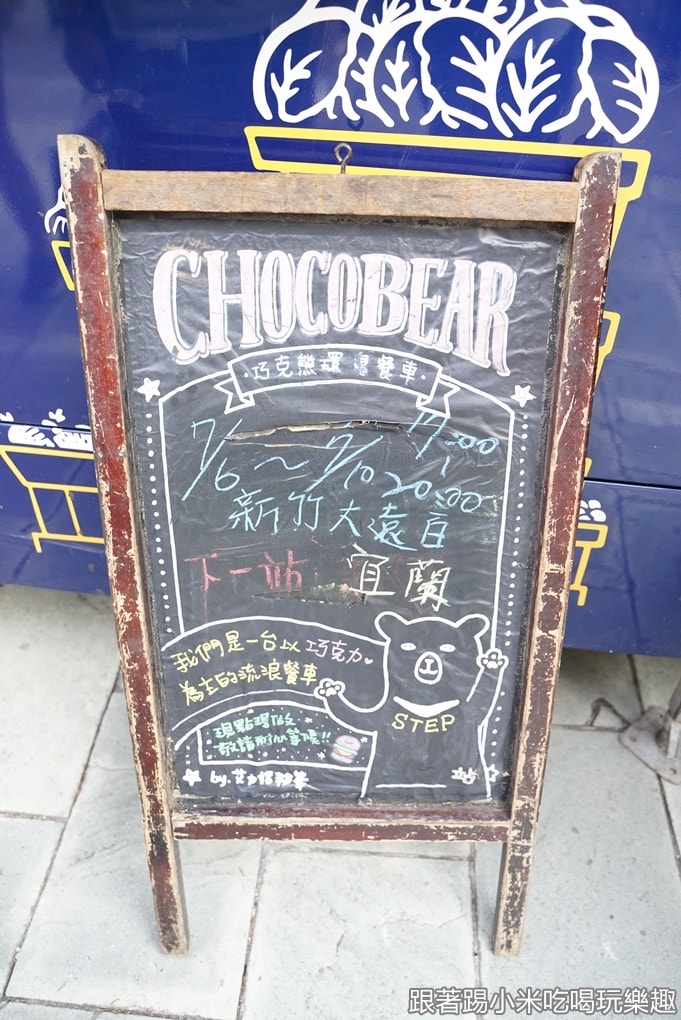 CHOCOBEAR
·巧克熊環 餐車·
7/6～7/10 20:00
新竹大遠百
下一站 宜蘭
我們是一台以巧克力
為主的流浪餐車
現點現做
敬請耐心等候!!
STEP
by.
跟著踢小米吃喝玩樂趣